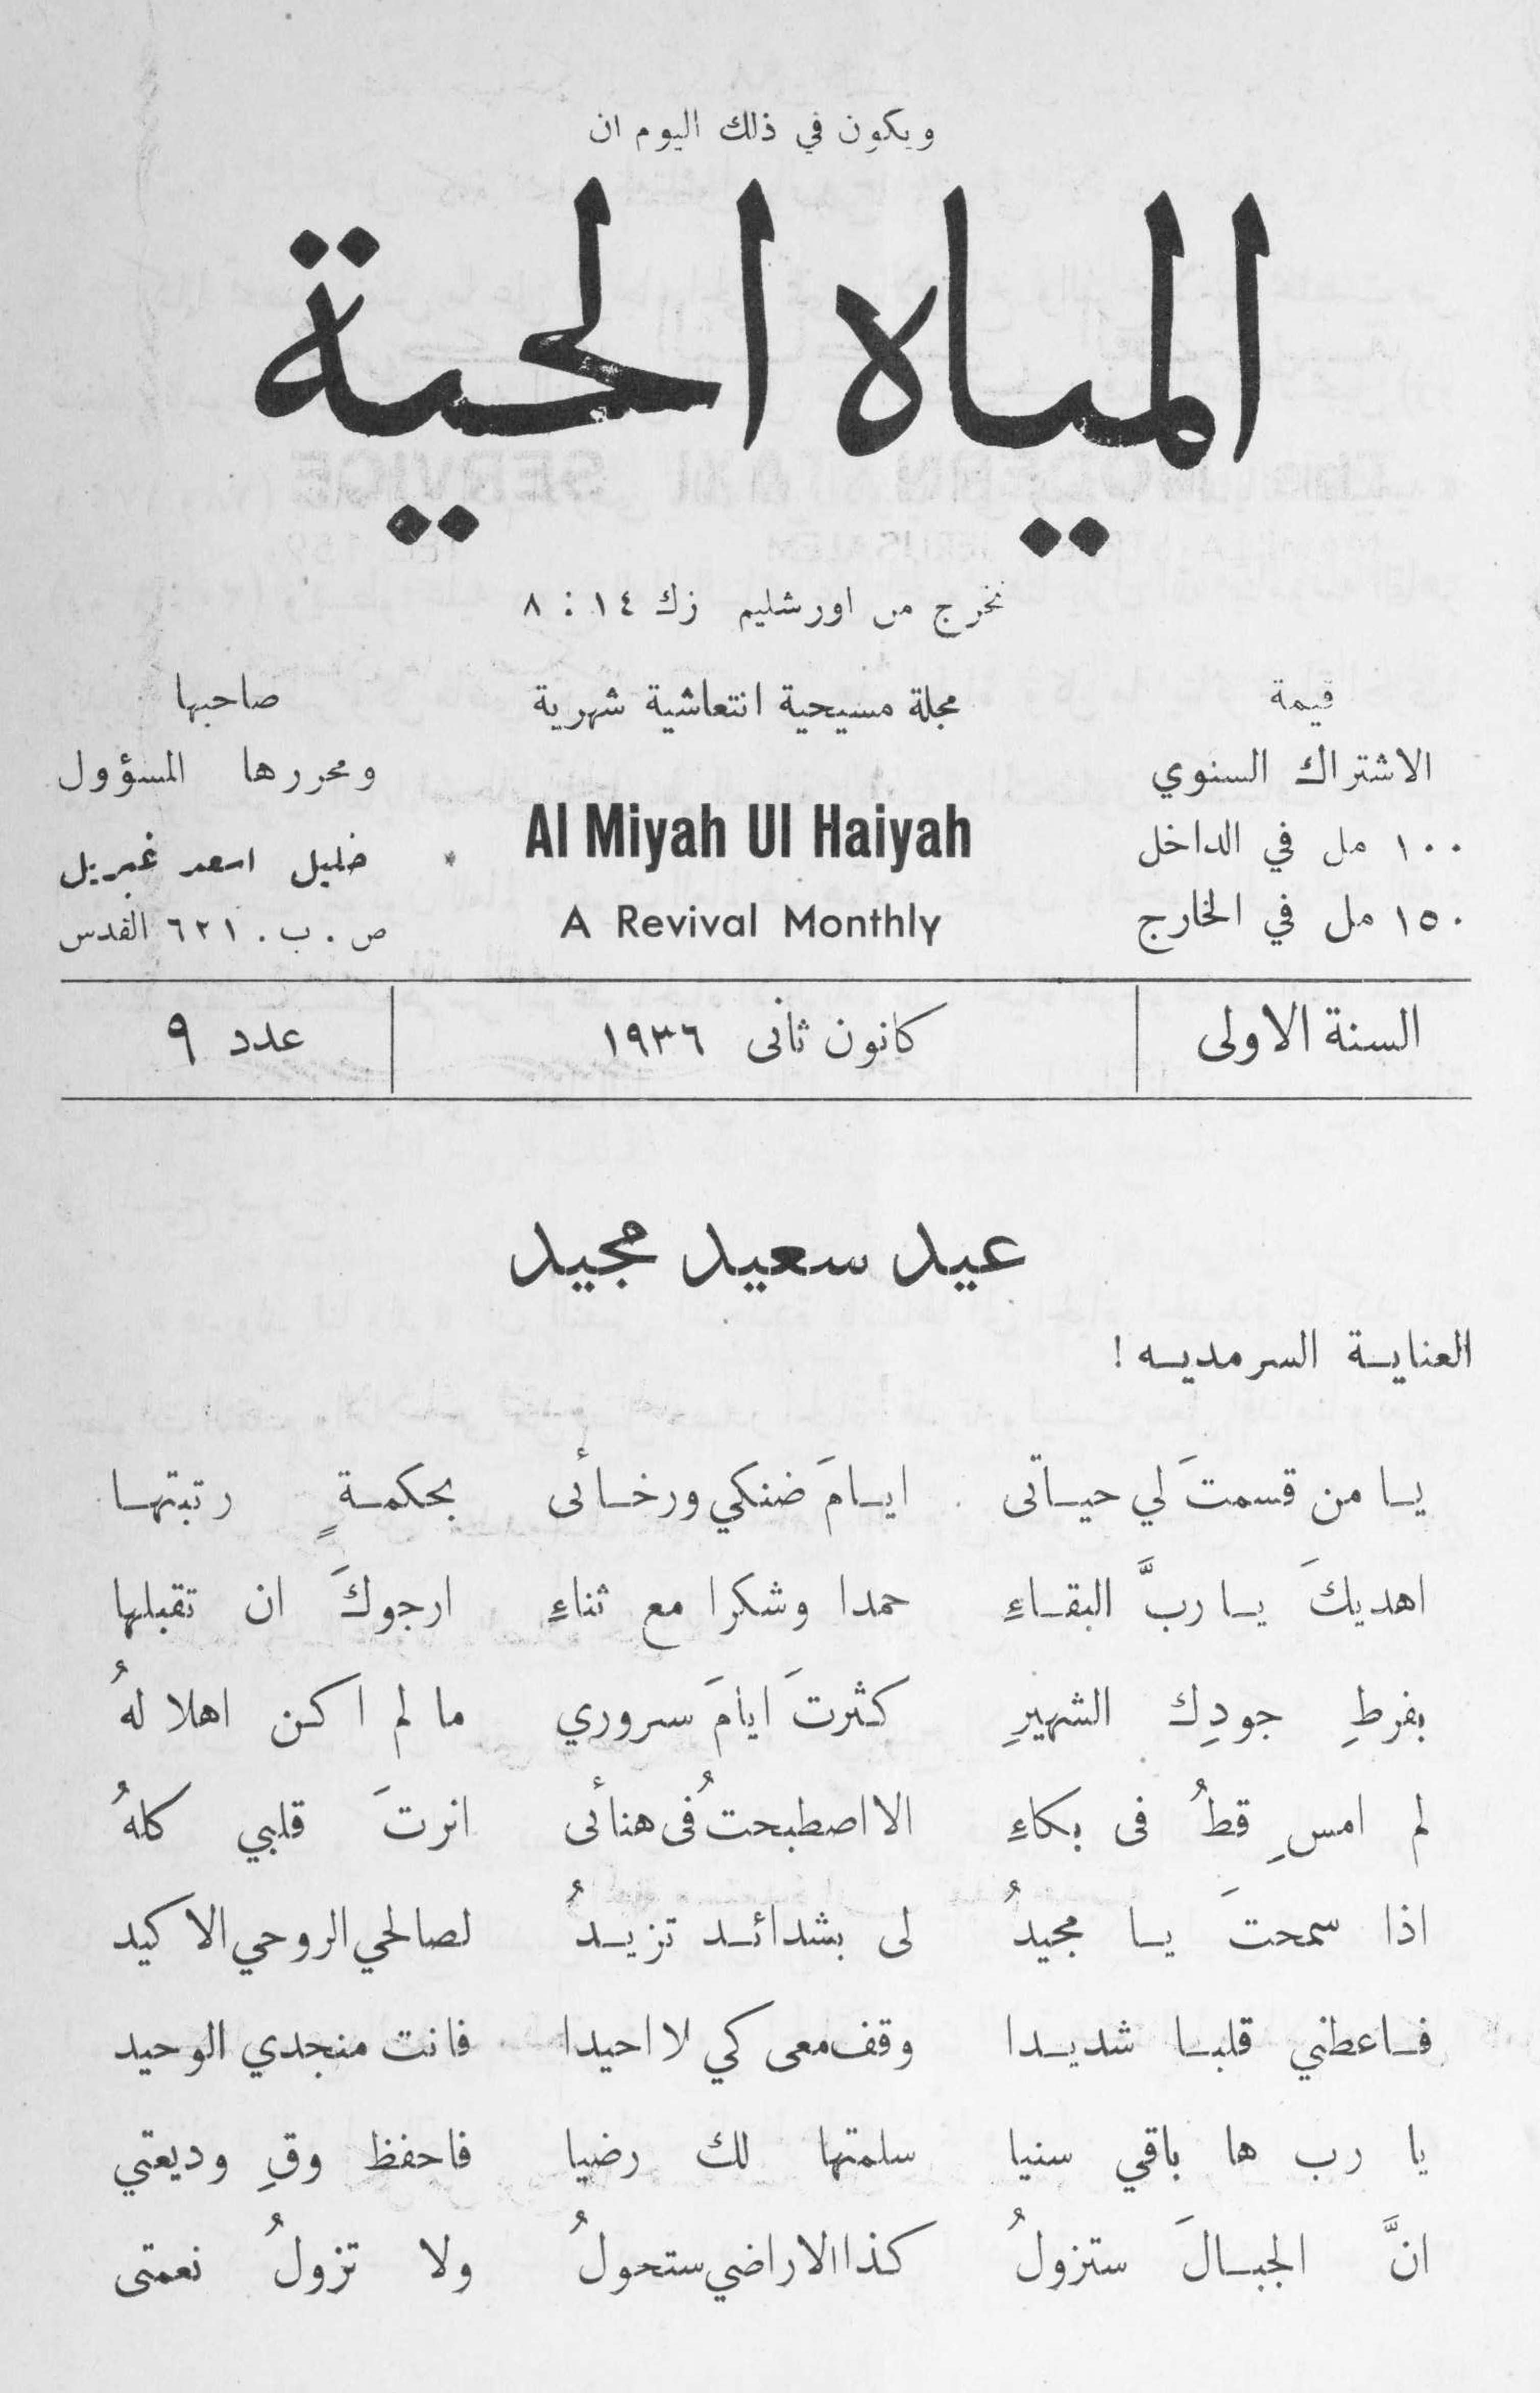 ويكون في ذلك اليوم ان
المياه الحية
تخرج من اورشليم زك ١٤ : ٨
قيمة
الاشتراك السنوي
١٠٠ مل في الداخل
١٥٠ مل في الخارج
مجلة مسيحية انتعاشية شهرية
Al Miyah Ul Haiyah
A Revival Monthly
صاحبها
ومحررها المسؤول
خليل اسعد غبريل
ص . ب . ٦٢١ القدس
السنة الاولى كانون ثانى ١٩٣٦ عدد ٩
عيد سعيد مجيد
العناية السرمديه !
يا من قسمتَ لي حياتى ايامَ ضنكي ورخائى بحكمةٍ رتبتها
اهديكَ يا ربَّ البقاءِ حمدا وشكرا مع ثناءِ ارجوكَ ان تقبلها
بفرطِ جودِك الشهيرِ كثرتَ ايامَ سروري ما لم اكن اهلا لهُ
لم امسِ قطُ فى بكاءِ الا اصطبحتُ فى هنائى انرتَ قلبي كلهُ
اذا سمحتَ يا مجيدُ لى بشدائد تزيدُ لصالحي الروحي الاكيد
فاعطني قلبا شديدا وقف معى كي لا احيدا فانت منجدي الوحيد
يا رب ها باقي سنيا سلمتها لك رضيا فاحفظ وقِ وديعتي
انَّ الجبالَ ستزولُ كذا الاراضي ستحولُ ولا تزولُ نعمتى